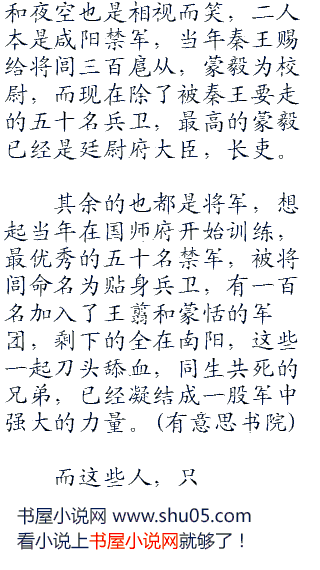 和夜空也是相视而笑，二人
本是咸阳禁军，当年秦王赐
给将闾三百扈从，蒙毅为校
尉，而现在除了被秦王要走
的五十名兵卫，最高的蒙毅
已经是廷尉府大臣，长吏。
其余的也都是将军，想
起当年在国师府开始训练，
最优秀的五十名禁军，被将
闾命名为贴身兵卫，有一百
名加入了王翦和蒙恬的军
团，剩下的全在南阳，这些
一起刀头舔血，同生共死的
兄弟，已经凝结成一股军中
强大的力量。(有意思书院)
而这些人，只
书屋小说网 www.shu05.com
看小说上书屋小说网就够了！